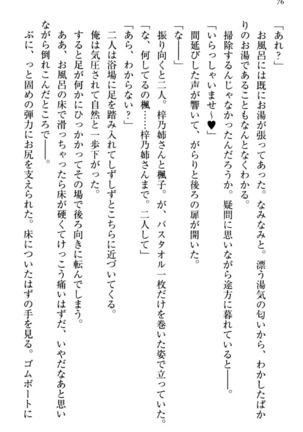 76
「あれ?」
お風呂には既にお湯が張ってあった。なみなみと。漂う湯気の匂いから、わかしたばか
りのお湯であることもなんとなくわかる。
掃除するんじゃなかったんだろうか。疑問に思いながら途方に暮れていると——
「いらっしゃいませ〜♥」
間延びした声が響いて、がらりと後ろの扉が開いた。
「な——」
振り向くと二人。梓乃姉さんと楓子。が、バスタオル一枚だけを巻いた姿で立っていた。
「な、何してるの楓……梓乃姉さんまで。二人して」
「あら、わからない?」
二人は浴場に足を踏み入れてしずしずとこちらに近づいてくる。
俺は気圧されて自然と一歩下がった。
すると足が何かにひっかかってその場で後ろ向きに転んでしまう。
ああ、お風呂の床で滑っちゃったら床が硬くてけっこう痛いはずだ、いやだなあと思い
ながら倒れこんだところで——。
ぷに、っと固めの弾力にお尻を支えられた。床についたはずの手を見る。ゴムボートに